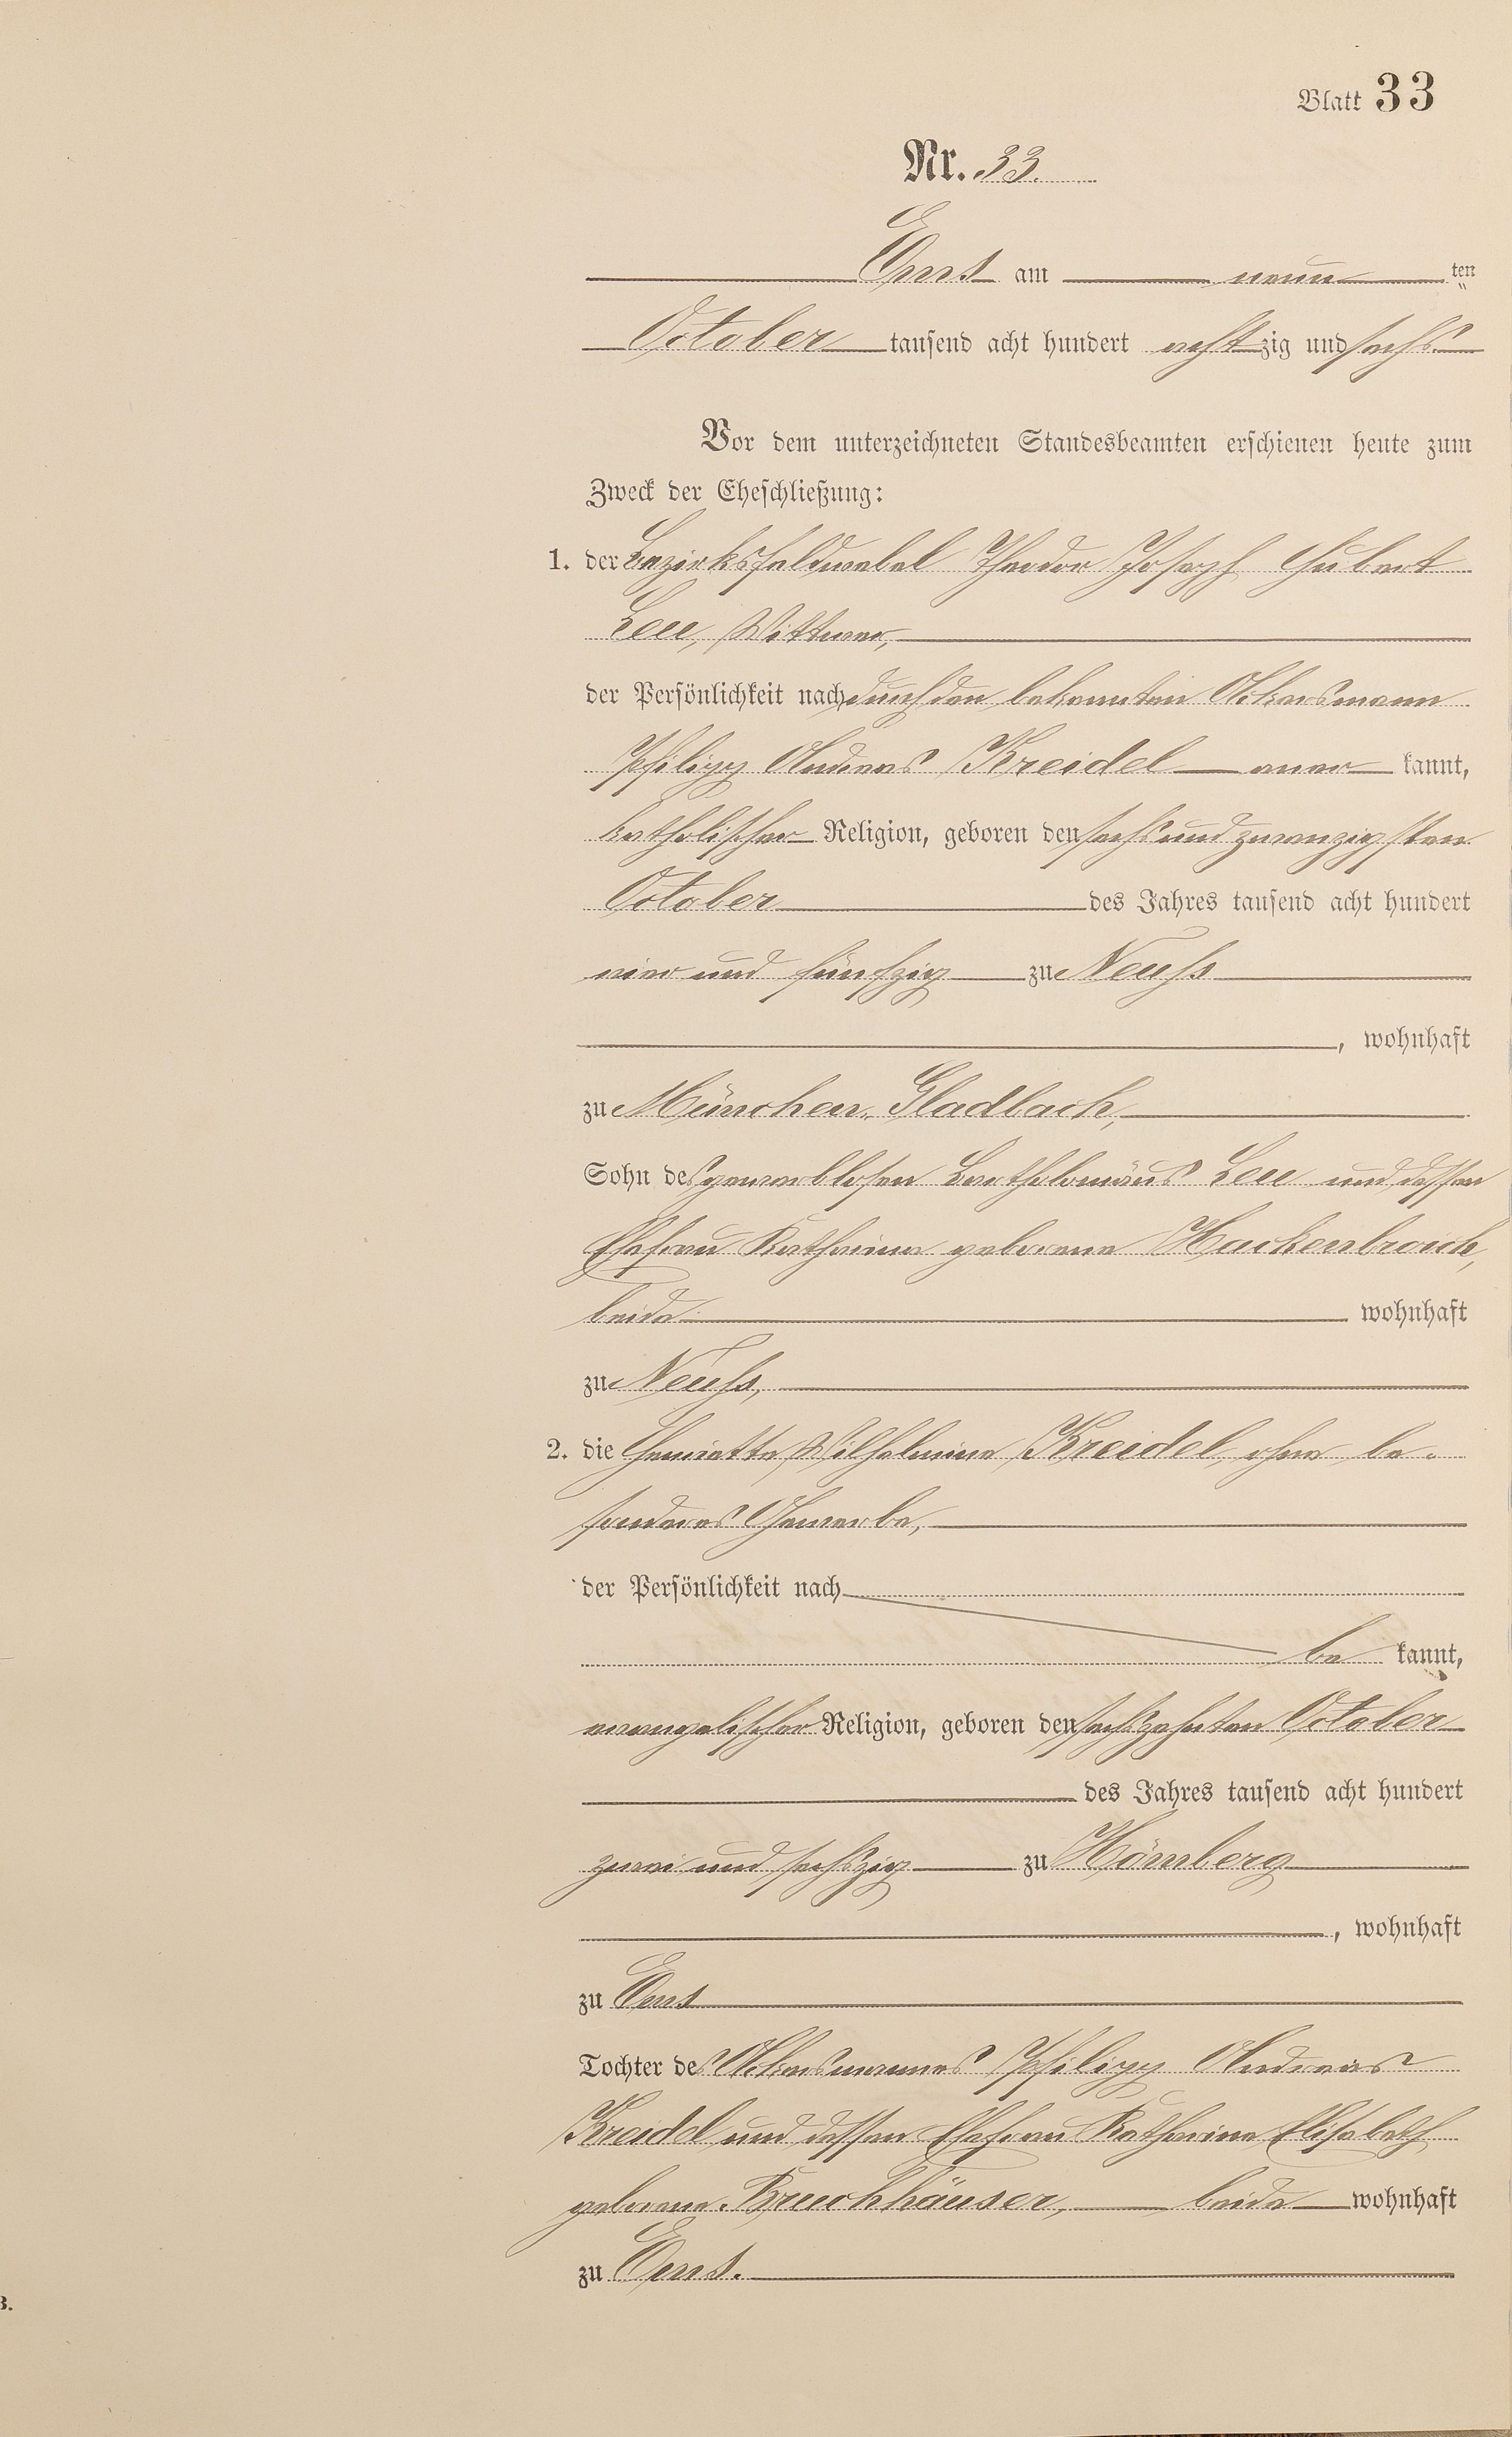 Blatt 33
Nr. 33.
Ems am neun ten
October tausend acht hundert achtzig und sechs
Vor dem unterzeichneten Standesbeamten erschienen heute zum
Zweck der Eheschließung:
1. der Bezirksfeldwebel Theodor Joseph Hubert
Leu, Wittwer,
der Persönlichkeit nach durch den bekannten Ackersmann
Philipp Andreas Kreidel aner kannt,
katholischer Religion, geboren den sechsundzwanzigsten
October des Jahres tausend acht hundert
vier und fünfzig zu Neuss
, wohnhaft
zu München-Gladbach,
Sohn des gewerblosen Bartholomäus Leu und dessen
Ehefrau Katharina geborene Hackenbroich,
beide wohnhaft
zu Neuss,
2. die Henriette Wilhelmine Kreidel, ohne be-
sonderes Gewerbe,
der Persönlichkeit nach
be kannt,
evangelischer Religion, geboren den sechszehnten October
des Jahres tausend acht hundert
zwei und sechszig zu Hömberg
, wohnhaft
zu Ems
Tochter des Ackersmannes Philipp Andreas
Kreidel und dessen Ehefrau Katharine Elisabeth
geborene Bruchhäuser, beide wohnhaft
zu Ems.